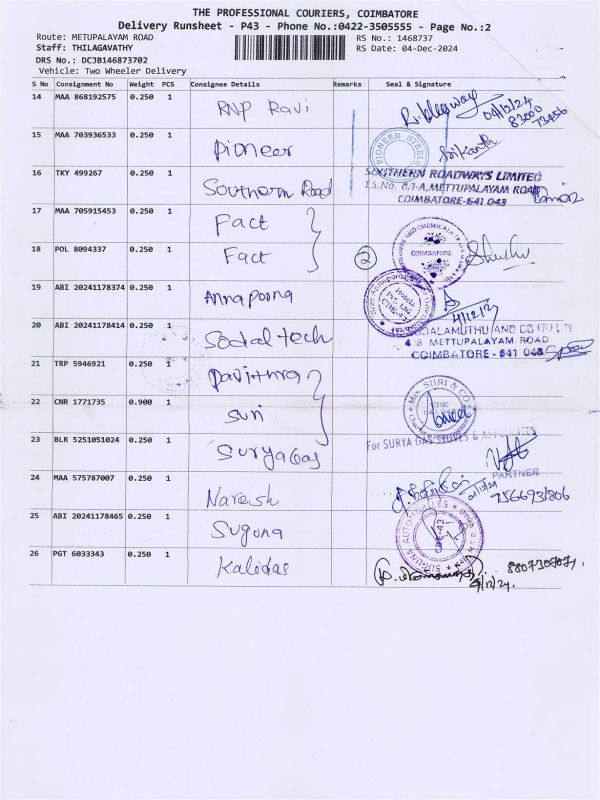 THE PROFESSIONAL COURIERS, COIMBATORE
Delivery Runsheet - P43 - Phone No.:0422-3505555 - Page No.:2
Route: METUPALAYAM ROAD RS No.: 1468737
Staff: THILAGAVATHY RS Date: 04-Dec-2024
DRS No.: DCJB146873702
Vehicle: Two Wheeler Delivery
S No Consignment No Weight PCS Consignee Details Remarks Seal & Signature
14 MAA 868192575 0.250 1 RNP Ravi 04/12/24
15 MAA 703936533 0.250 1 Pioneer PIONEER STEELS Srikanth
16 TKY 499267 0.250 1 Southern Road
SOUTHERN ROADWAYS LIMITED
METTUPALAYAM ROAD
COIMBATORE-641 043
17 MAA 705915453 0.250 1 Fact
COIMBATORE
18 POL 8094337 0.250 1 Fact 2
19 ABI 20241178374 0.250 1 Annapoorna
4/12/24
20 ABI 20241178414 0.250 1 Social tech
AND CO
METTUPALAYAM ROAD
COIMBATORE - 641 043
21 TRP 5946921 0.250 1 Pavithra
22 CNR 1771735 0.900 1 Suri SURI & CO
23 BLR 5251051024 0.250 1 Surya Gas
For SURYA GAS STOVES & APPLIANCES
PARTNER
24 MAA 575787007 0.250 1 Naresh
25 ABI 20241178465 0.250 1 Suguna SUGUNA AUTOMOBILES
26 PGT 6033343 0.250 1 Kalidas